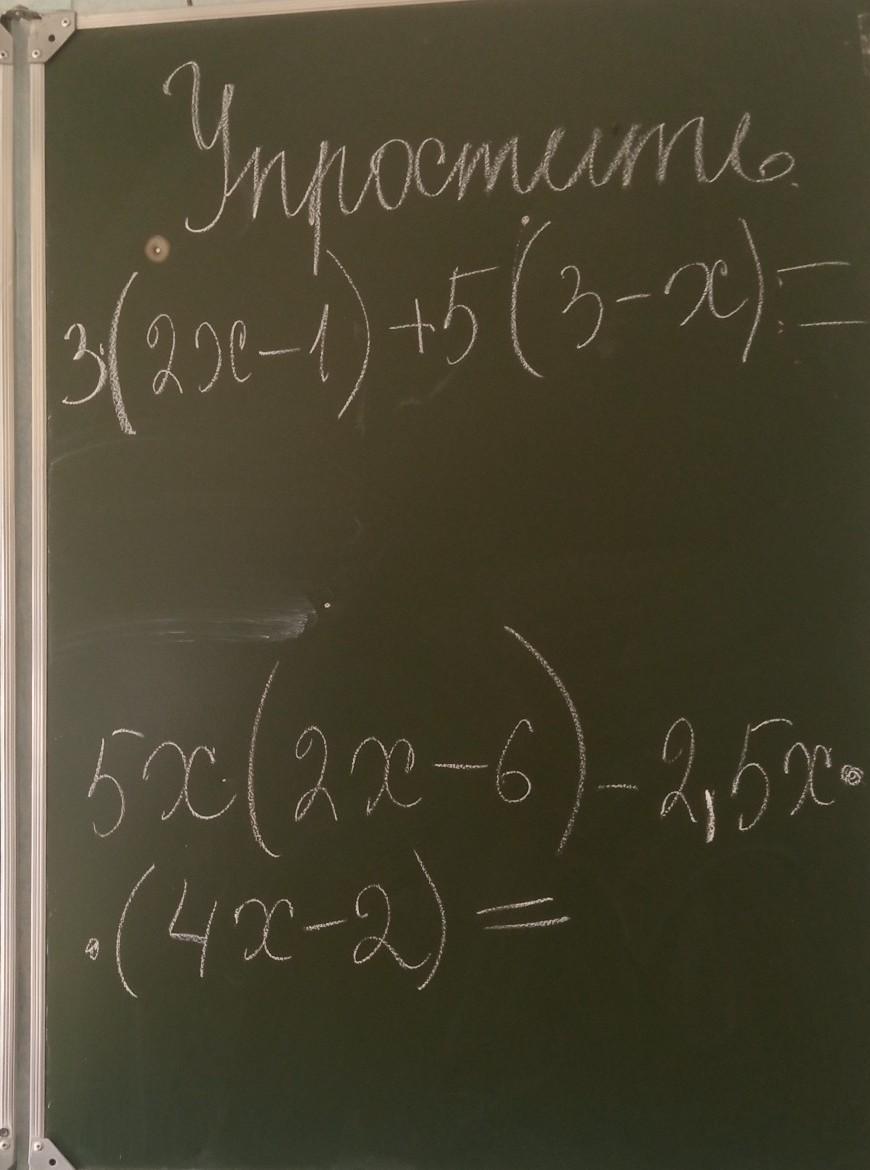 Упростить.
3·(2x-1)+5(3-x)=
5x(2x-6)-2,5x·
·(4x-2)=